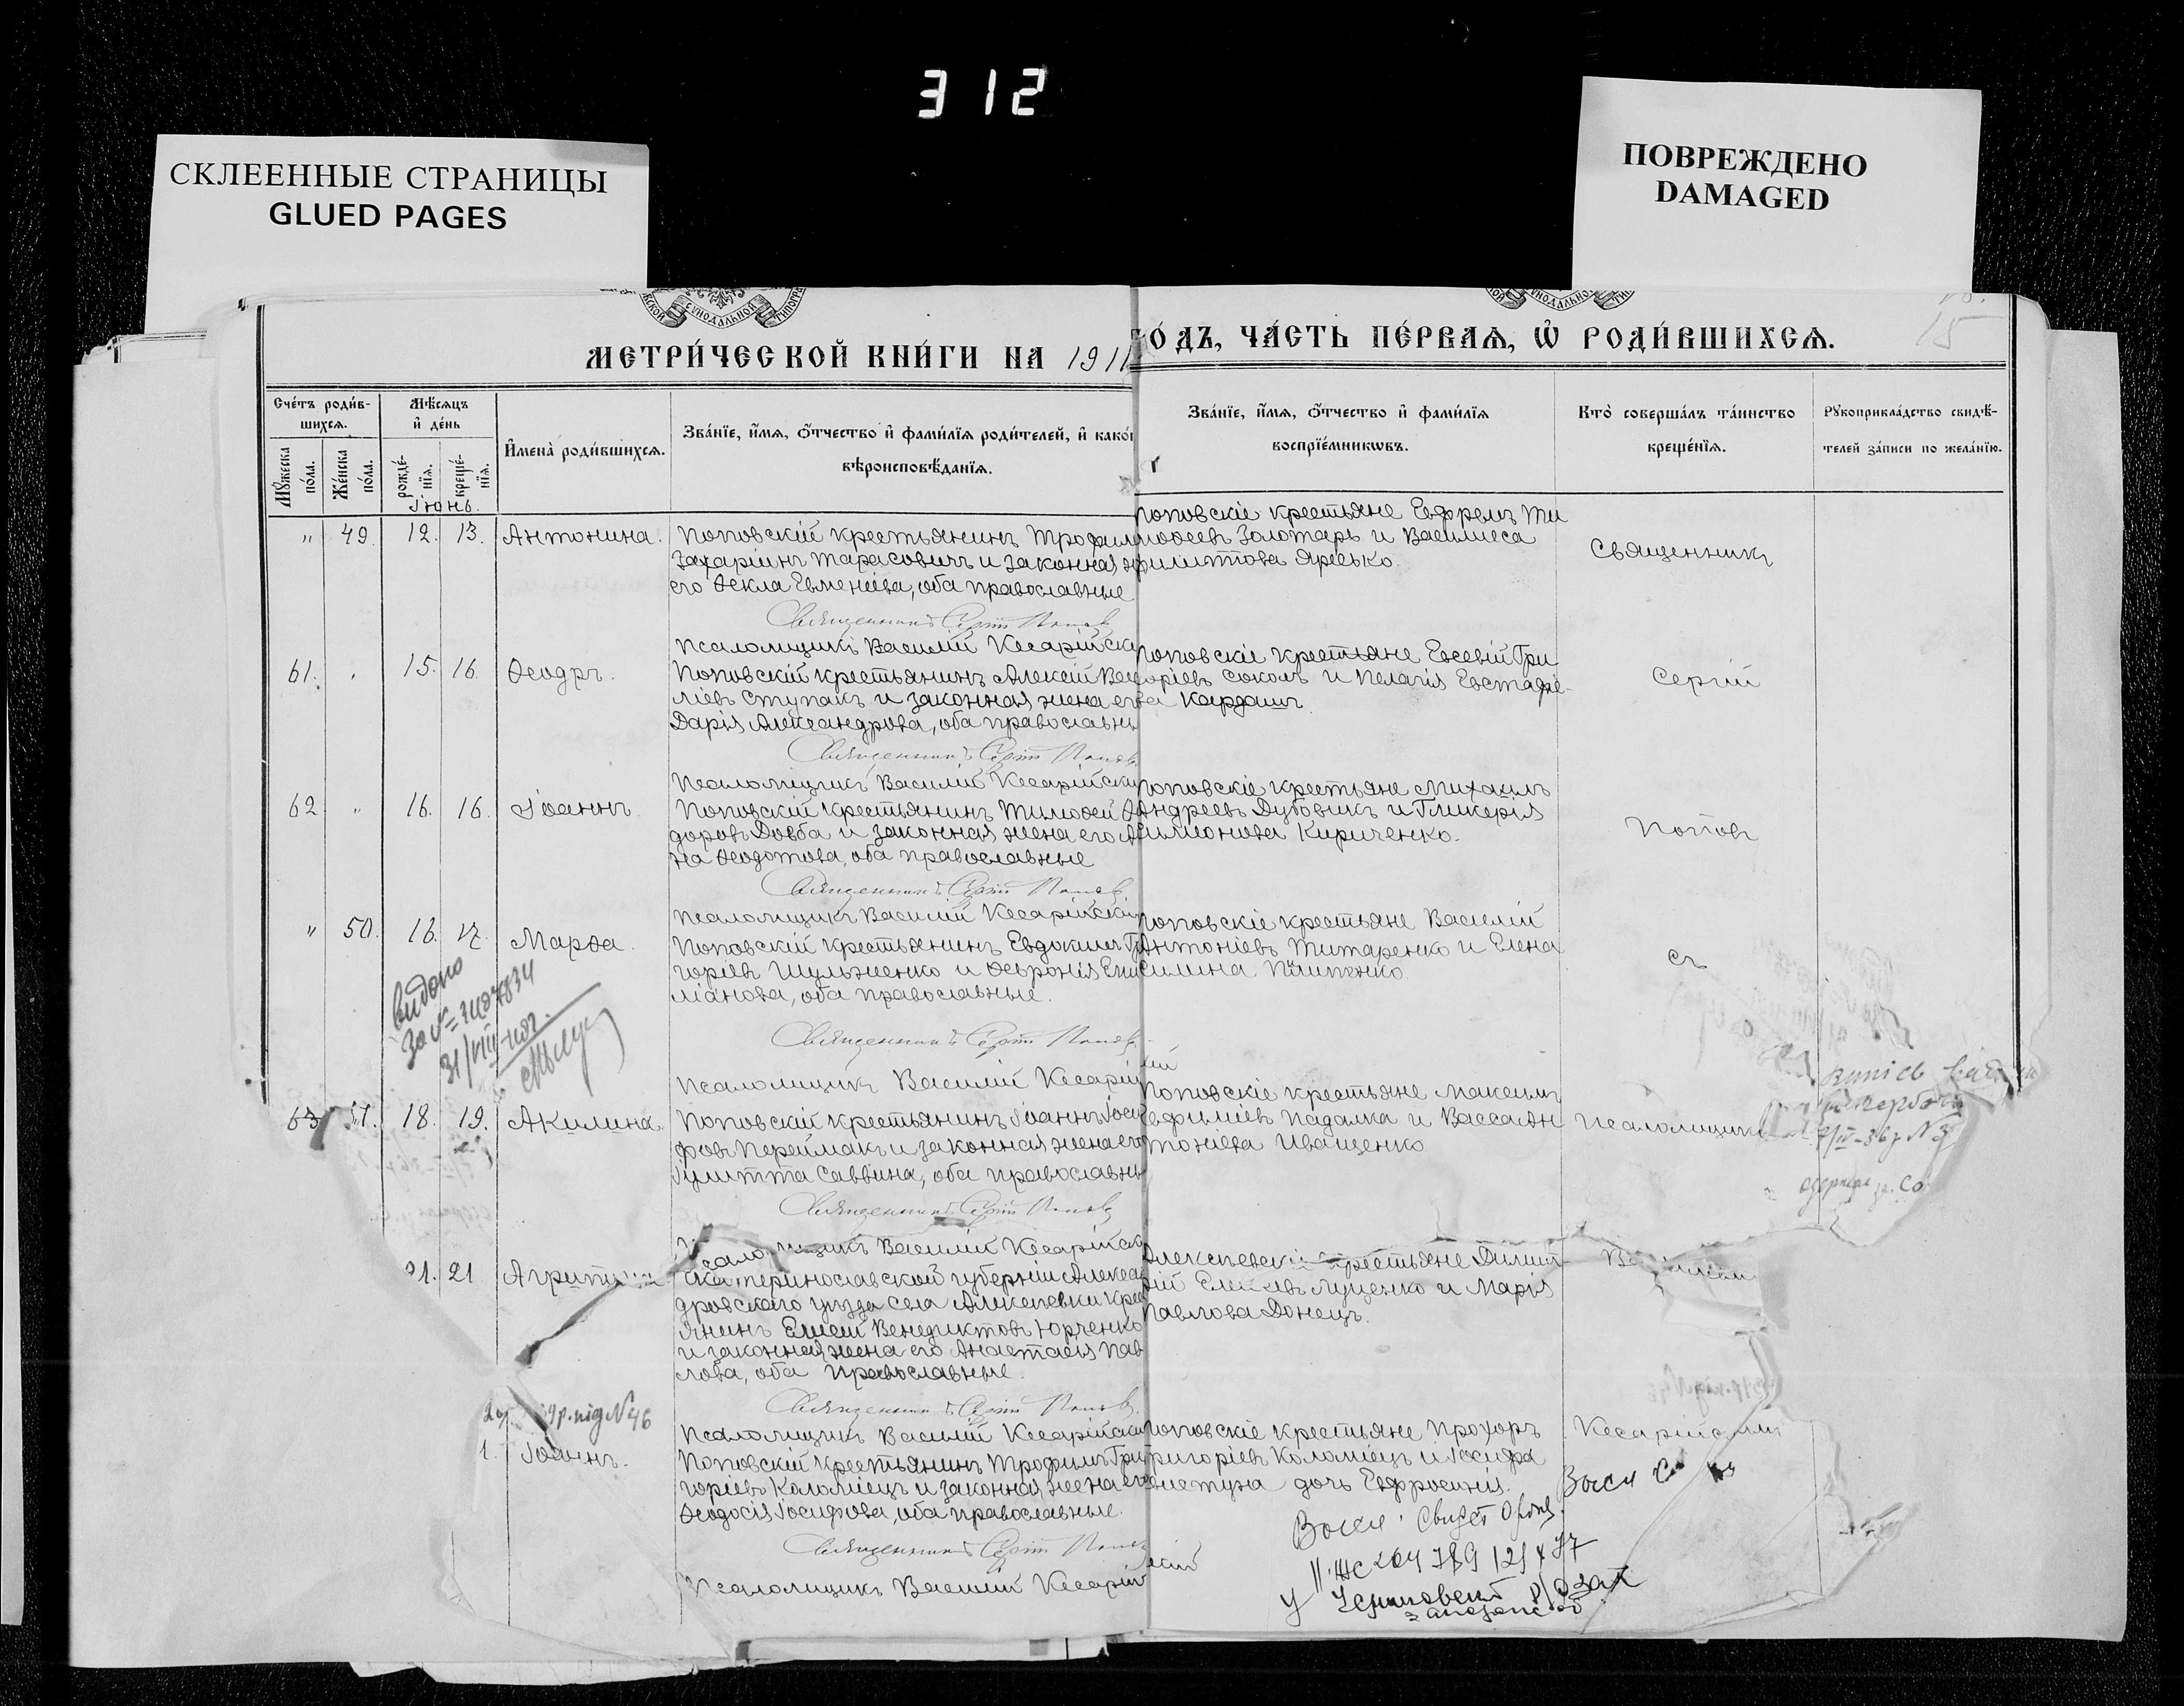 312
СКЛЕЕННЫЕ СТРАНИЦЫ
GLUED PAGES
ПОВРЕЖДЕНО
DAMAGED
СѴНОДАЛЬНОЙ
15
МЕТРИ́ЧЕСКОЙ КНИ́ГИ НА 1911
ГО́ДЪ, ЧА́СТЬ ПЕ́РВАѦ, Ѽ РОДИ́ВШИХСѦ.
Сче́тъ роди́в-
шихсѧ.
Мꙋ́жеска по́ла.
Же́нска по́ла.
Мѣ́сѧцъ
и҆ де́нь
рожде́-
нїѧ.
креще́-
нїѧ.
И҆мена̀ роди́вшихсѧ.
Зва́нїе, и҆́мѧ, ѻ҆́тчество и҆ фами́лїѧ роди́телей, и҆ како́г
вѣроисповѣ́данїѧ.
Зва́нїе, и҆́мѧ, ѻ҆́тчество и҆ фами́лїѧ
воспрїе́мникѡвъ.
Кто̀ соверша́лъ та́инство
креще́нїѧ.
Рꙋкоприкла́дство свидѣ́-
телей за́писи по жела́нїю.
Іюнь.
" 49. 12. 13. Антонина.
Поповскій крестьянинъ Трофим
Захаріинъ Тарасовичъ и законная ж
его Ѳекла Евменіева, оба православные
Священникъ Сергій Попов
Псаломщикъ Василій Кесарійски
Поповскіе крестьяне Ефремъ Ти
моѳеевъ Золотарь и Василиса
Филиппова Яресько.
Священникъ
61. " 15. 16. Ѳеодръ.
Поповскій крестьянинъ Алексій Вас
ліевъ Ступакъ и законная жена его
Дарія Александрова, оба православны
Священникъ Сергій Попов
Псаломщикъ Василій Кесарійски
Поповскіе крестьяне Евсевій Гри
горіевъ Соколъ и Пелагія Евстафіе-
ва Кардашъ.
Сергій
62 " 16. 16. Іоаннъ
Поповскій крестьянинъ Тимоѳей Ѳ
доровъ Довба и законная жена его А
на Ѳеодотова, оба православные
Священникъ Сергій Попов
Псаломщикъ Василій Кесарійскі
Поповскіе крестьяне Михаилъ
Андреевъ Дубовикъ и Гликерія
Филимонова Кириченко.
Попов
" 50. 16. 17. Марѳа.
Поповскій крестьянинъ Евдокимъ Гр
горіевъ Шульженко и Ѳевронія Еми
ліанова, оба православные.
Священникъ Сергій Попов
Псаломщикъ Василій Кесарій
Поповскіе крестьяне Василій
Антоніевъ Титаренко и Елена
Силина Пилипенко
съ
видано
31/VIII
63 51. 18. 19. Акилина.
Поповскій крестьянинъ Іоаннъ Іоси
фовъ Переймакъ и законная жена его
Іулитта Саввина, оба православны
Священникъ Сергій Попов
Псаломщикъ Василій Кесарійск
Поповскіе крестьяне Максимъ
Ефиміевъ Падалка и Васса Ан
тоніева Иващенко
Псаломщикомъ
21. 21 Агриппина
Екатеринославской губерніи Алекса
дровскаго уѣзда села Алексѣевки крес
янинъ Елисей Венедиктовъ Юрченко
и законная жена его Анастасія Пав
лова, оба православные.
Священникъ Сергій Попов
Псаломщикъ Василій Кесарійски
Алексѣевскіе крестьяне Димит-
рій Елисеевъ Луценко и Марія
Павлова Донецъ.
Василіем
др. під N 46
1. Іоаннъ.
Поповскій крестьянинъ Трофимъ Гри
горіевъ Коломіецъ и законная жена его
Ѳеодосія Іосифова, оба православные.
Священникъ Сергій Попов
Псаломщикъ Василій Кесарійскій
Поповскіе крестьяне Прохоръ
Григоріевъ Коломіецъ и Іосифа
дочь Евфросинія.
Кесарійскимъ